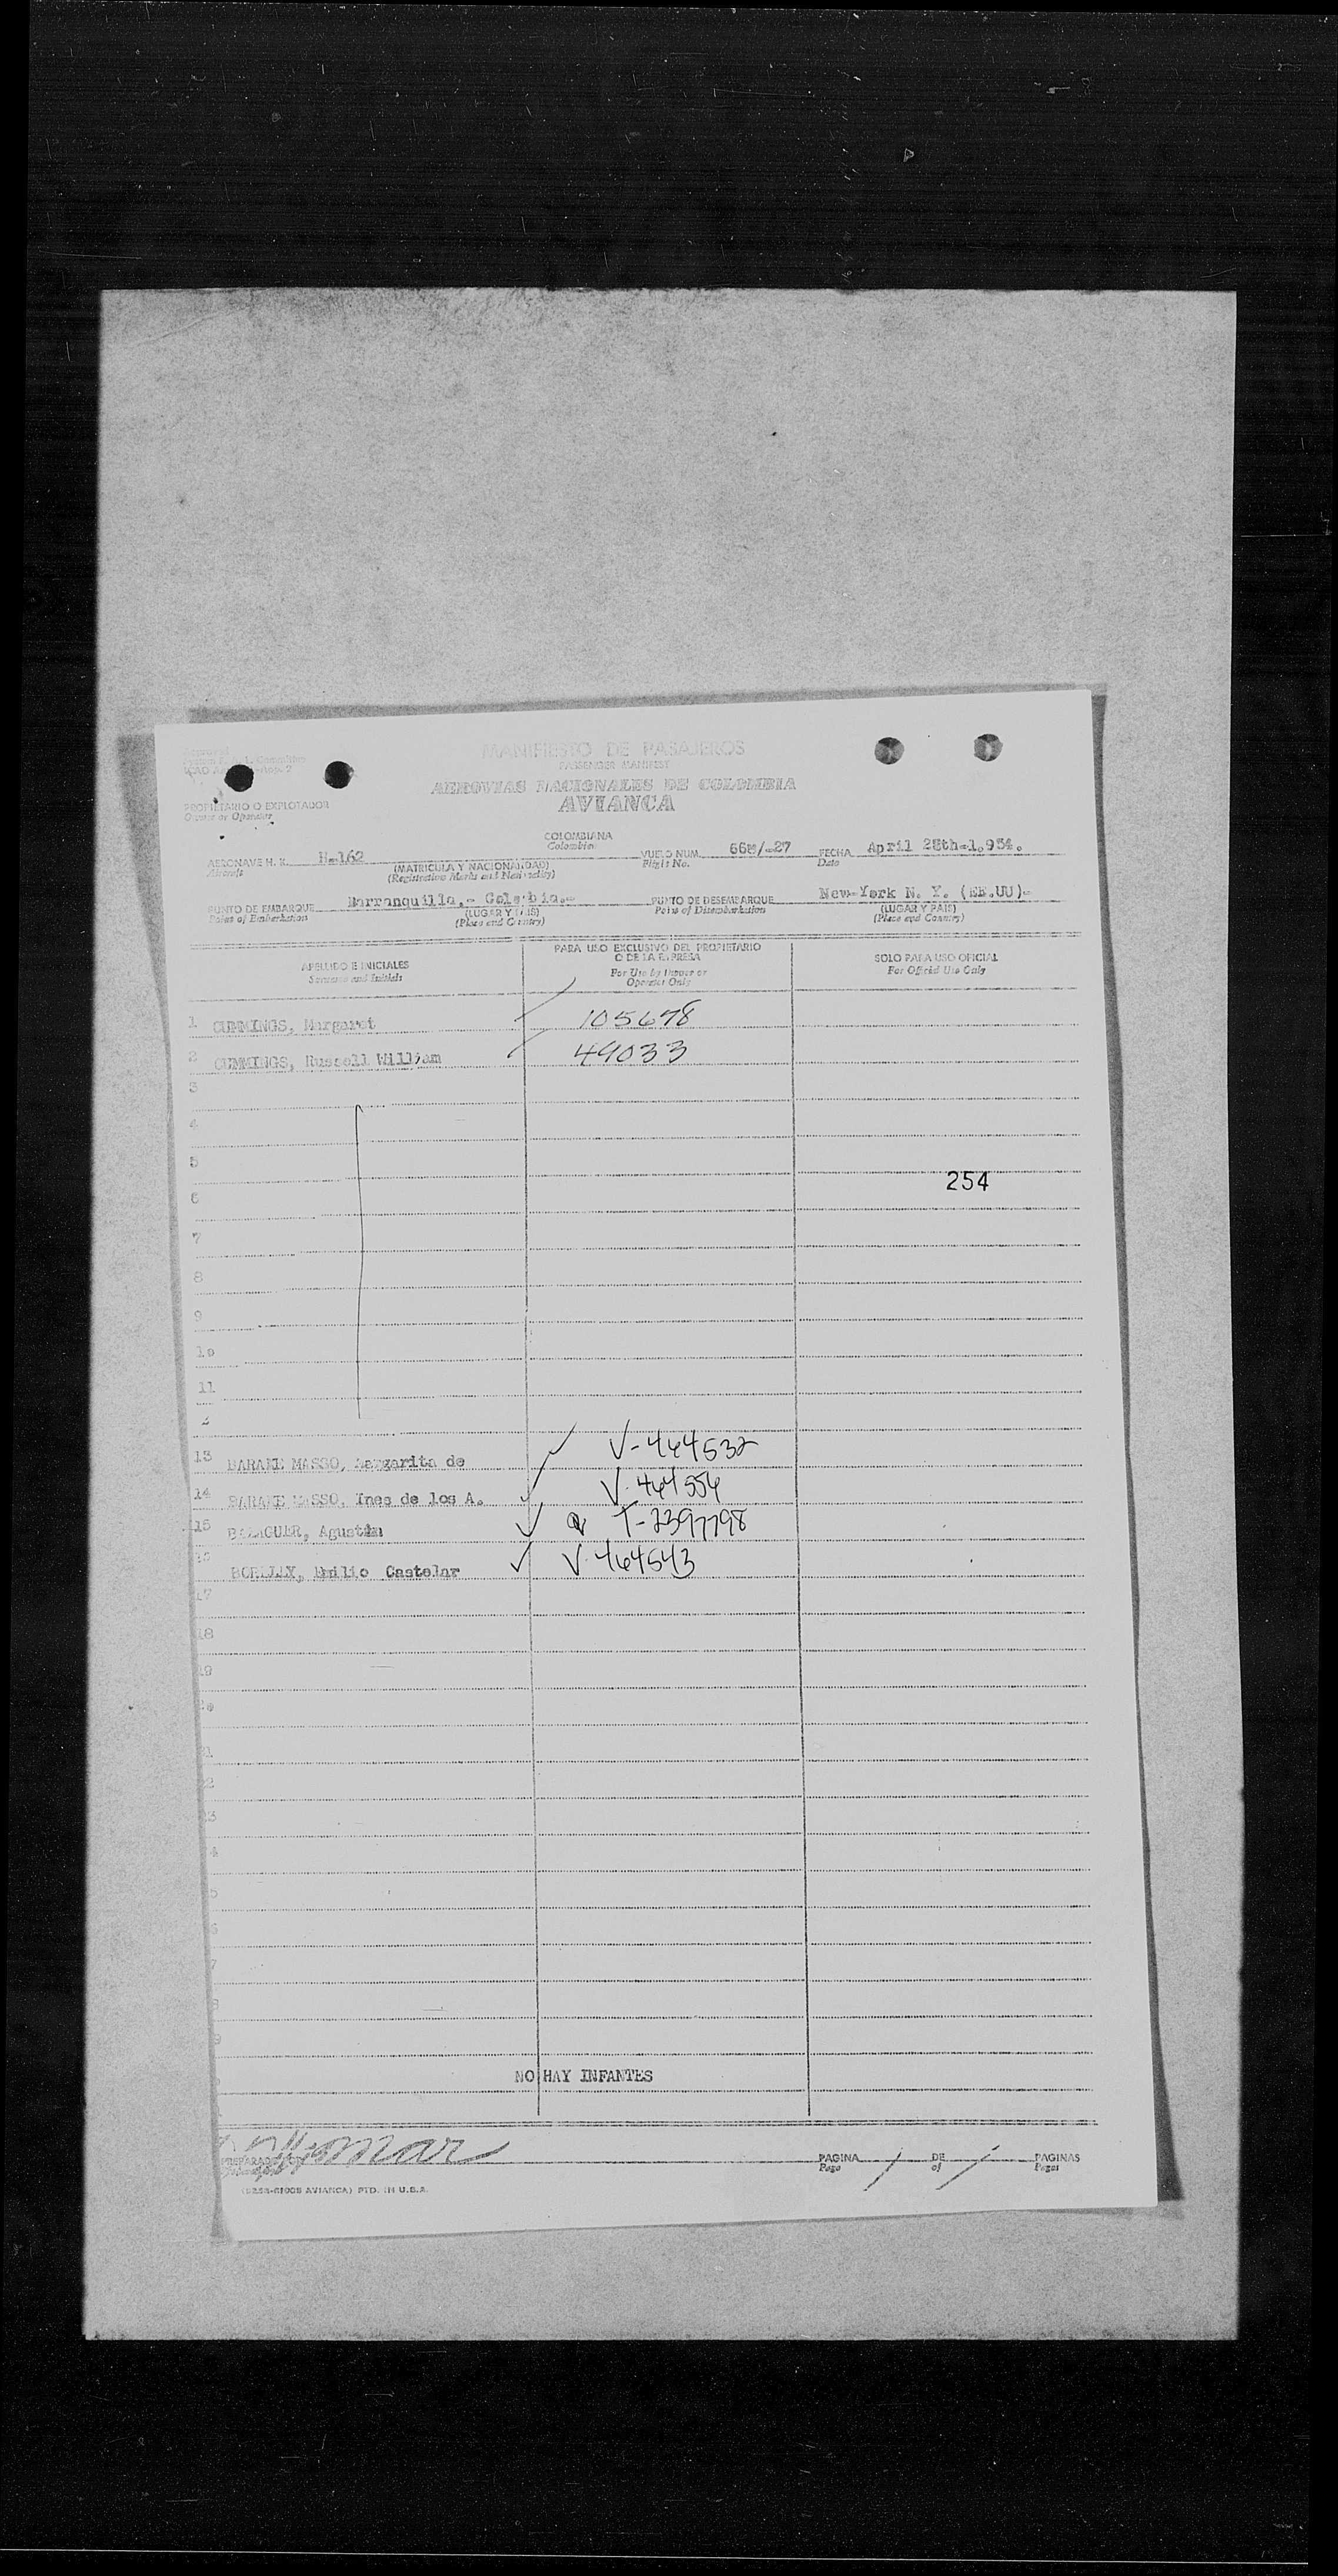 MANIFIESTO DE PASAJEROS
PASSENGER MANIFEST
AEROVIAS NACIONALES DE COLOMBIA
AVIANCA
PROPIETARIO O EXPLOTADOR
Owner or Operator
COLOMBIANA
Colombian
AERONAVE H. K. H-162
Aircraft
(MATRICULA Y NACIONALIDAD)
(Registration Marks and Nationality)
VUELO NUM. 668/-27
Flight No.
FECHA April 28th-1,954.
Date
PUNTO DE EMBARQUE Barranquilla,- Colombia.-
Point of Embarkation
(LUGAR Y PAIS)
(Place and Country)
PUNTO DE DESEMBARQUE New-York N. Y. (EE.UU)-
Point of Disembarkation
(LUGAR Y PAIS)
(Place and Country)
APELLIDO E INICIALES
Surname and Initials
PARA USO EXCLUSIVO DEL PROPIETARIO
O DE LA EMPRESA
For Use by Owner or
Operator Only
SOLO PARA USO OFICIAL
For Official Use Only
1 CUMMINGS, Margaret 105678
2 CUMMINGS, Russell William 49033
3
4
5
254
6
7
8
9
10
11
13 BARAKE MASSO, Margarita de V-464532
14 BARAKE MASSO, Ines de los A. V-464556
15 BALAGUER, Agustin T-2397798
BORELLY, Emilio Castelar V-464543
17
18
19
NO HAY INFANTES
PREPARADO
PAGINA 1 DE 1 PAGINAS
Page of Pages
AVIANCA) PTD. IN U.S.A.